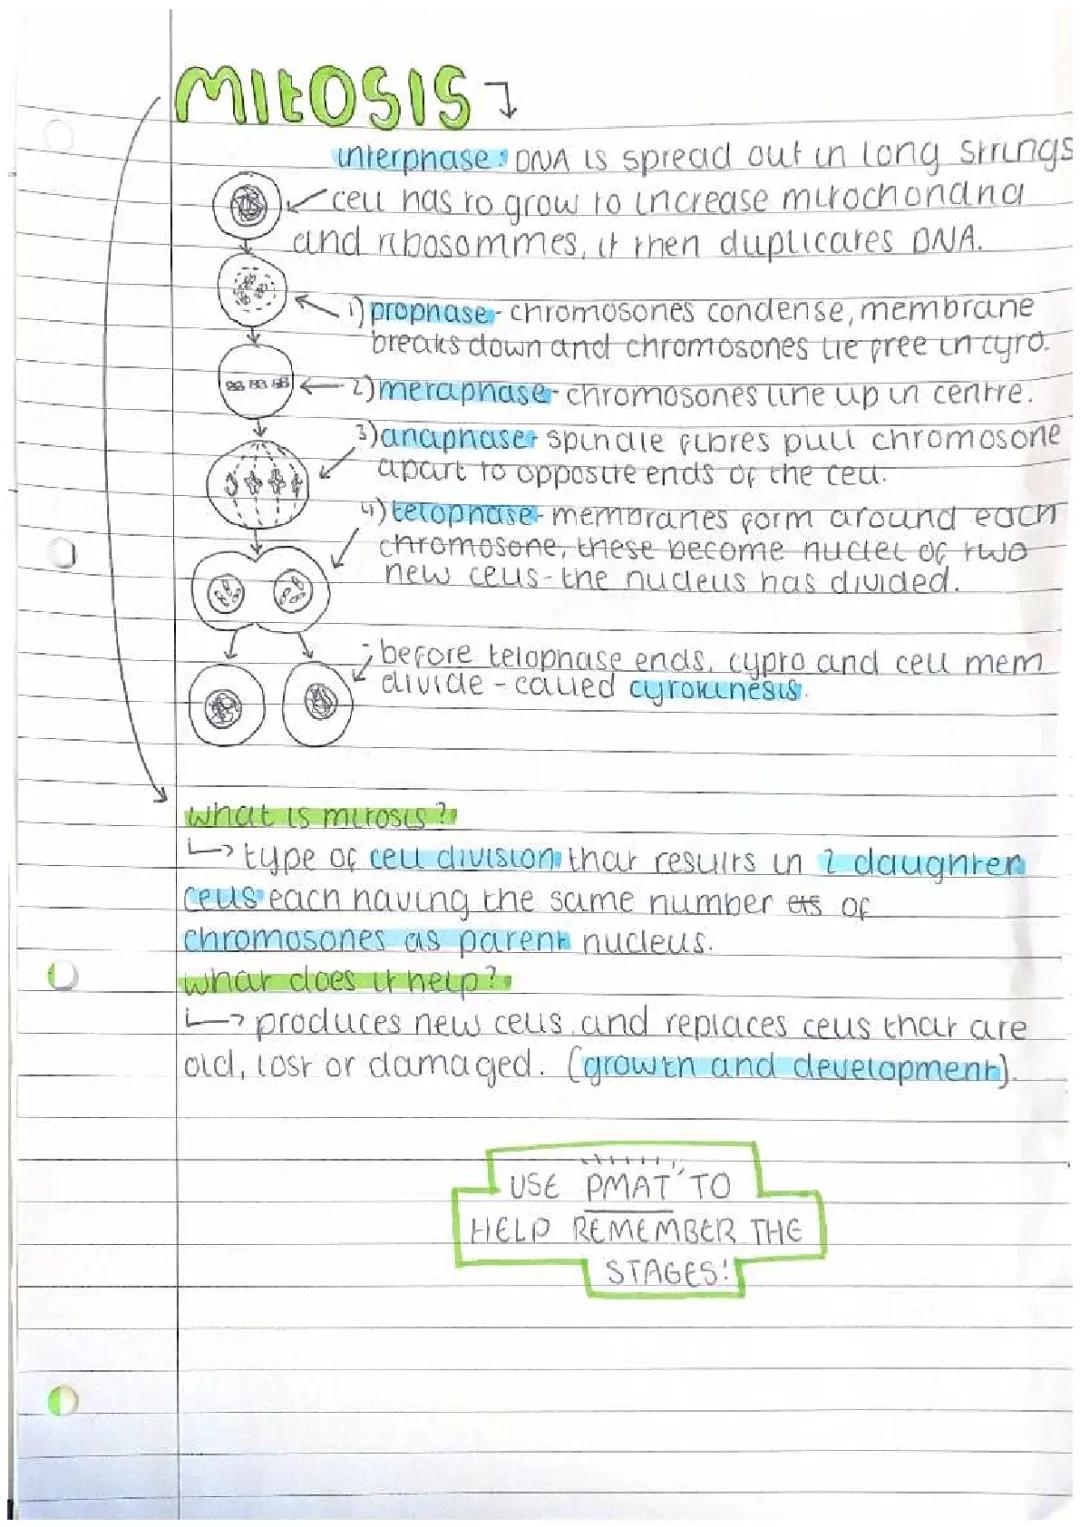 MITOSIS
interphase: DNA is spread out in long strings
cell has to grow to increase mitochondria
and ribosommes, it then duplicates DNA.
1) prophase - chromosones condense, membrane
breaks down and chromosones lie free in cyto.
2) metaphase - chromosones line up in centre.
3) anaphase - spindle fibres pull chromosone
apart to opposite ends of the cell.
4) telophase - membranes form around each
chromosone, these become nuclei of two
new cells - the nucleus has divided.
- before telophase ends, cypto and cell mem
divide - called cytokinesis.
what is mitosis?
↳ type of cell division that results in 2 daughter
cells each having the same number ets of
chromosones as parent nucleus.
what does it help?
↳ produces new cells and replaces cells that are
old, lost or damaged. (growth and development).
USE PMAT TO
HELP REMEMBER THE
STAGES!